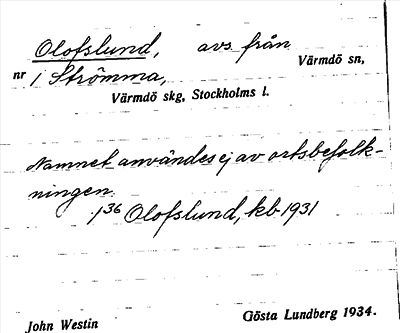 Olofslund, avs. från
Värmdö sn,
nr 1 Strömma,
Värmdö skg, Stockholms l.
Namnet användes ej av ortsbefolk-
ningen.
1³⁶ Olofslund, kb 1931
John Westin Gösta Lundberg 1934.